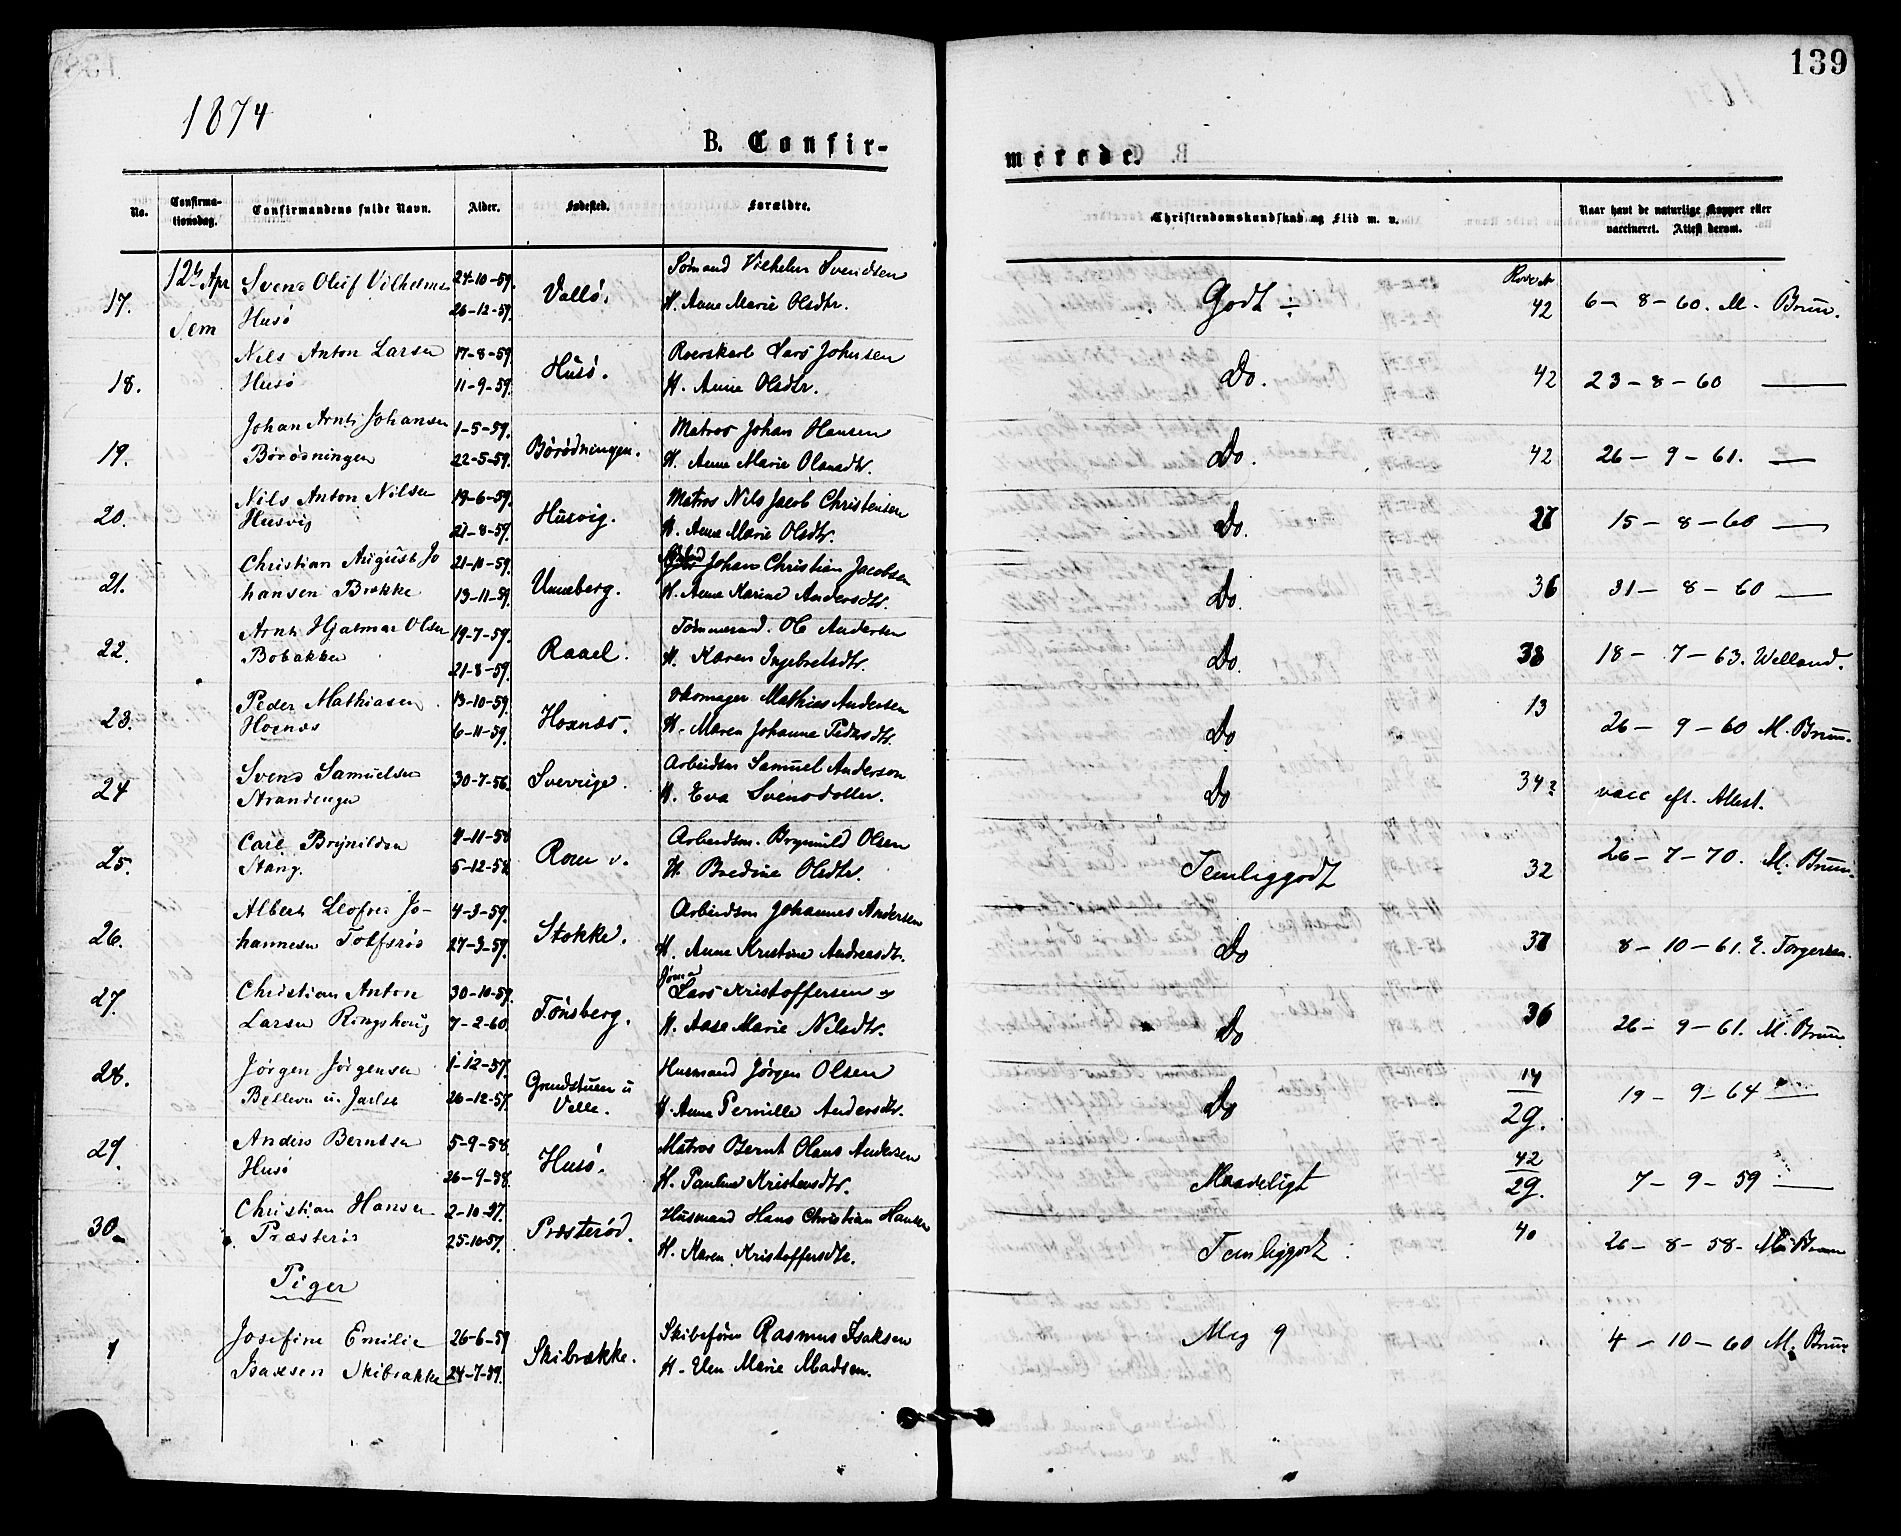 139
1874
B. Confir-
merede.
No.
Confirma-
tionsdag.
Confirmandens fulde Navn.
Alder.
Fødested.
Forældre.
Christendomskundskab og Flid m. v.
Naar havt de naturlige Kopper eller
vaccineret. Attest derom.
12te Apr
Sem
17.
Svend Oluf Vilhelmsen 24-10-59.
Husö 26-12-59.
Vallö.
Sömand Vilhelm Svendsen
H. Anne Marie Olsdtr.
Godt ÷
42
6 - 8 - 60. M. Bruun.
18.
Nils Anton Larsen 17-8-59.
Husö 11-9-59.
Husö.
Lars Johnsen
H. Anne Olsdtr.
Do.
42
23 - 8 - 60 —
19.
Johan Arnt Johansen 1-5-59.
Börösningen 22-5-59.
Börösningen.
Matros Johan Hansen
H. Anne Marie Olausdtr.
Do.
42
26 - 9 - 61. —
20.
Nils Anton Nilsen 19-6-59.
Husvig 21-8-59.
Husvig.
Matros Nils Jacob Christensen
H. Anne Marie Olsdtr.
Do.
15 - 8 - 60 —
21.
Christian August Jo 21-10-59.
hansen Brekke 13-11-59.
Unneberg.
Johan Christian Jacobsen
H. Anne Karine Andersdtr.
Do.
36
31 - 8 - 60 —
22.
Arnt Hjalmar Olsen 19-7-59.
Bobakken 21-8-59.
Raael.
Tömmermd. Ole Andersen
H. Karen Ingebretsdtr.
Do.
38
18 - 7 - 63. Welland.
23.
Peder Mathiasen 13-10-59.
Hoxnæs 6-11-59.
Hoxnæs.
Skomager Mathias Andersen
H. Maren Johanne Pedersdtr.
Do
13
26 - 9 - 60 M. Bruun.
24
Svend Samuelsen 30-7-56.
Strandengen
Sverrige.
Arbeidsm Samuel Anderson
H. Eva Svensdotter.
Do
34
vacc eft. Attest.
25.
Carl Brynildsen 4-11-58
Stang. 5-12-58.
Arbeidsm. Brynild Olsen
H. Bredine Olsdtr.
Temliggodt
32
26 - 7 - 70. M. Bruun.
26.
Albert Jo- 4-3-59.
hannesen Tolfsröd 27-3-59.
Stokke.
Arbeidsm Johannes Andersen
H. Anne Kristine Andreasdtr.
Do
8 - 10 - 61. E. Torgersen.
27.
Christian Anton 30-10-59.
Larsen Ringshoug 7-2-60.
Tönsberg.
Lars Kristoffersen
H. Aase Marie Nilsdtr.
Do
36
26 - 9 - 61. M. Bruun
28.
Jörgen Jörgensen 1-12-57.
Bellevu u. Jarlsø 26-12-57.
Grundstuen u
Velle.
Husmand Jörgen Olsen
H. Anne Pernille Andersdtr.
Do
14
29.
19 - 9 - 64 —
29.
Anders Berntsen 5-9-58.
Husö 26-9-58.
Husö.
Matros Bernt Olaus Andersen
H. Pauline Kristensdtr.
Maadeligt
42
29.
7 - 9 - 59 —
30.
Christian Hansen 2-10-57.
Præsteröd 25-10-57.
Præsteröd.
Husmand Hans Christian Hansen
H. Karen Kristoffersdtr.
Temliggodt
40
26 - 8 - 58 - M. Bruun
Piger
1
Josefine Emilie 26-6-59
Isaksen Skibrække 24-7-59.
Skibrække.
Skibsförer Rasmus Isaksen
H. Elen Marie Madsen.
Meg g
4 - 10 - 60 M. Bruun